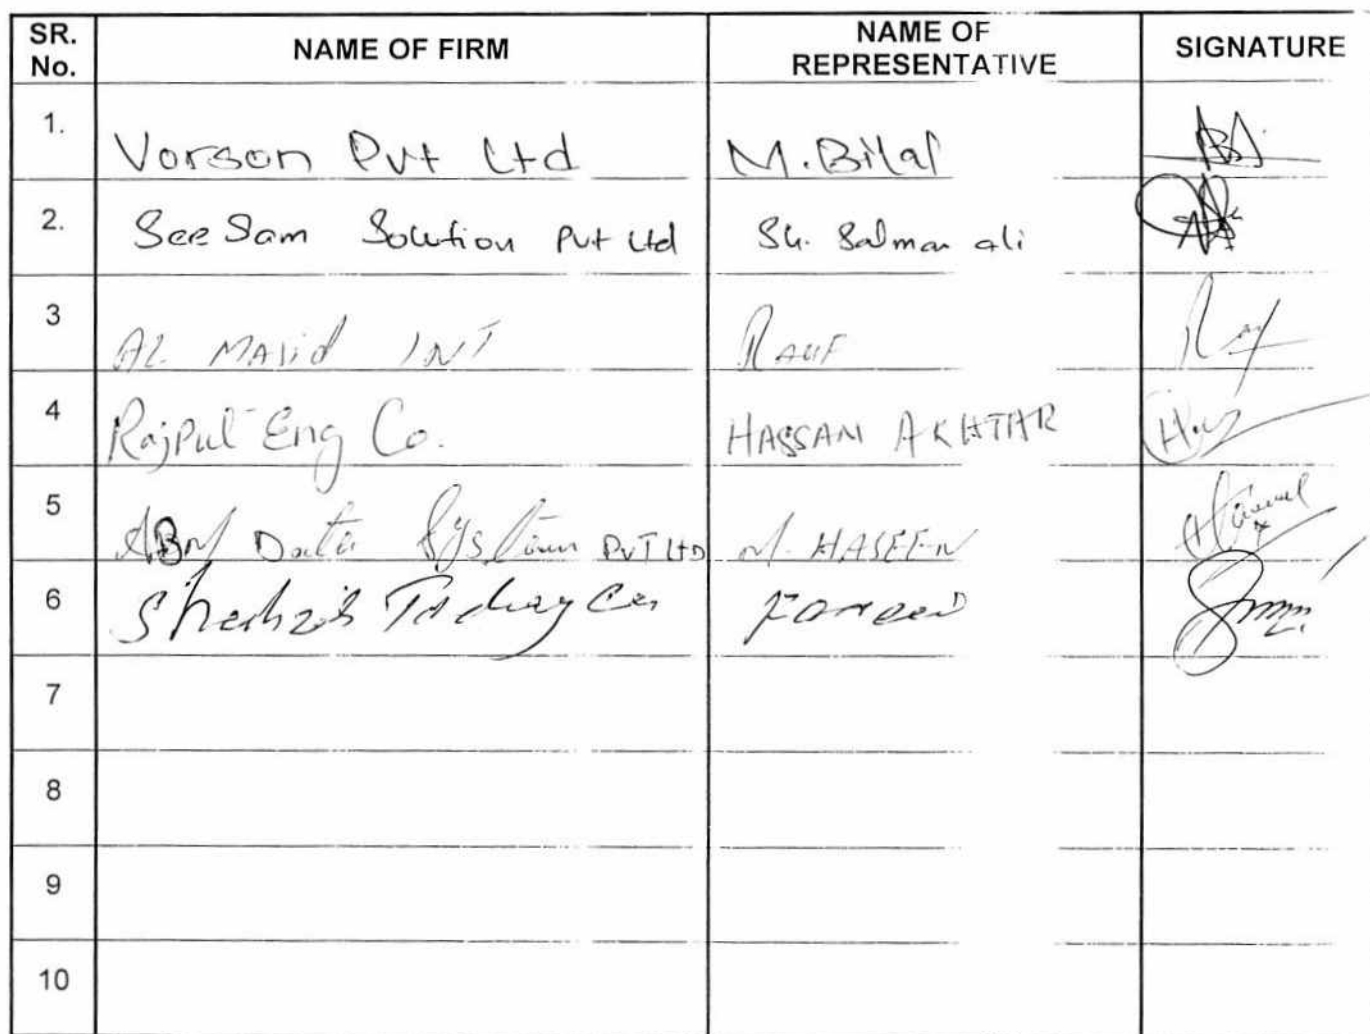 SR. No. NAME OF FIRM NAME OF REPRESENTATIVE SIGNATURE
1. Vorson Pvt Ltd M. Bilal
2. SeeSam Solution Pvt Ltd Sh. Salman ali
3 AL MAJid INT RAUF
4 Rajput Eng Co. HASSAN AKHTAR
5 ABM Data Systems PVT LTD M. HASEEN
6 Trading Fareed
7
8
9
10